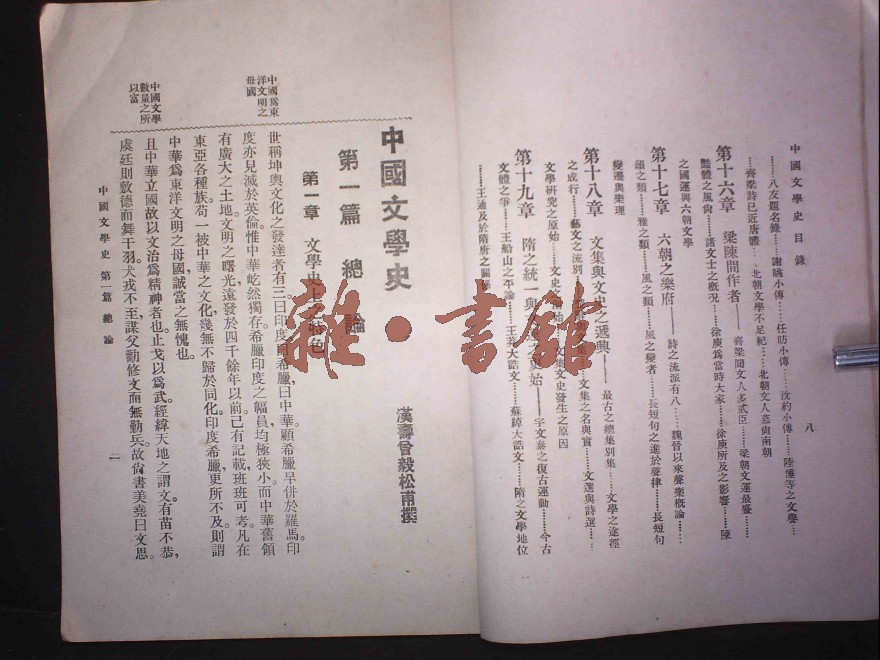 中國文學史 目錄
八
……八友題名錄……謝朓小傳……任昉小傳……沈約小傳……陸倕等之文譽……
……齊梁詩已近唐體……北朝文學不足紀……北朝文人慕尚南朝
第十六章 梁陳間作者——齊梁間文人多武臣……梁朝文運最盛……
豔體之風尚……諸文士之概況……徐庾爲當時大家……徐庾所及之影響……陳
之國運與六朝文學
第十七章 六朝之樂府——詩之流派有八……魏晉以來聲樂概論……
頌之類……雅之類……風之類……風之變者……長短句之進於聲律……長短句
變遷與樂理
第十八章 文集與文史之遞興——最古之總集別集……文學之途徑
之成行……藝文之流別……文集之名與實……文選與詩選……
文學研究之原始……文史發生之原因
第十九章 隋之統一與……始——宇文泰之復古運動……今古
文體之爭……王船山之平論……大誥文……蘇綽大誥文……隋之文學地位
……王通及於隋唐之關係
中國文學史
漢壽曾毅松甫撰
第一篇 總論
第一章 文學史上之特色
中國爲東
洋文明之
母國
世稱坤輿文化之發達者有三曰印度曰希臘曰中華顧希臘早併於羅馬印
度亦見滅於英倫惟中華屹然獨存希臘印度之幅員均極狹小而中華舊領
有廣大之土地文明之曙光遠發於四千餘年以前已有記載班班可考凡在
東亞各種族苟一被中華之文化幾無不歸於同化印度希臘更所不及則謂
中華爲東洋文明之母國誠當之無愧也
中國文學
數量之所
以富
且中華立國故以文治爲精神者也止戈以爲武經緯天地之謂文有苗不恭
虞廷則敷德而舞干羽犬戎不至謀父勸修文而無勤兵故尚書美堯曰文思
中國文學史 第一篇 總論
雜·書館